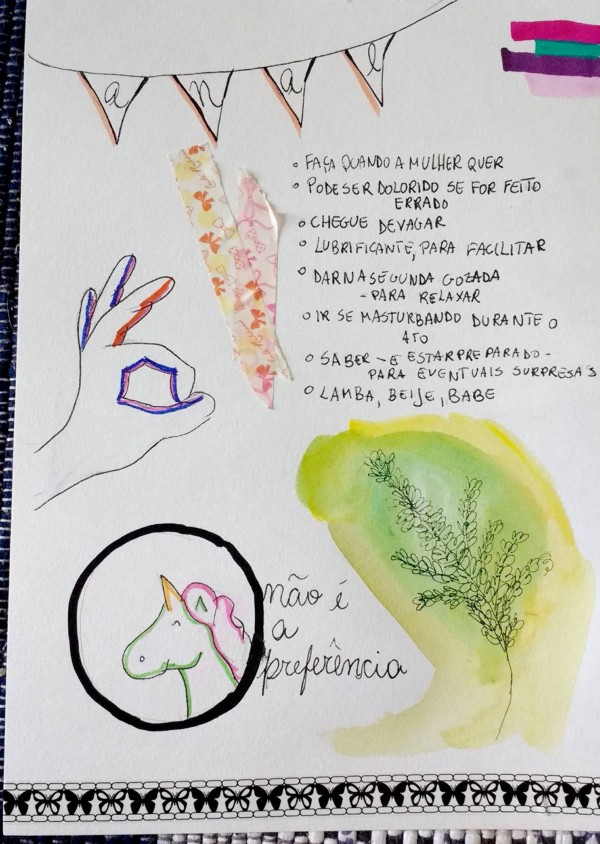 anal
◦ FAÇA QUANDO A MULHER QUER
◦ PODE SER DOLORIDO SE FOR FEITO
ERRADO
◦ CHEGUE DEVAGAR
◦ LUBRIFICANTE, PARA FACILITAR
◦ DAR NA SEGUNDA GOZADA
- PARA RELAXAR
◦ IR SE MASTURBANDO DURANTE O
ATO
◦ SABER - E ESTAR PREPARADO -
PARA EVENTUAIS SURPRESAS
◦ LAMBA, BEIJE, BABE
não é
a
preferência